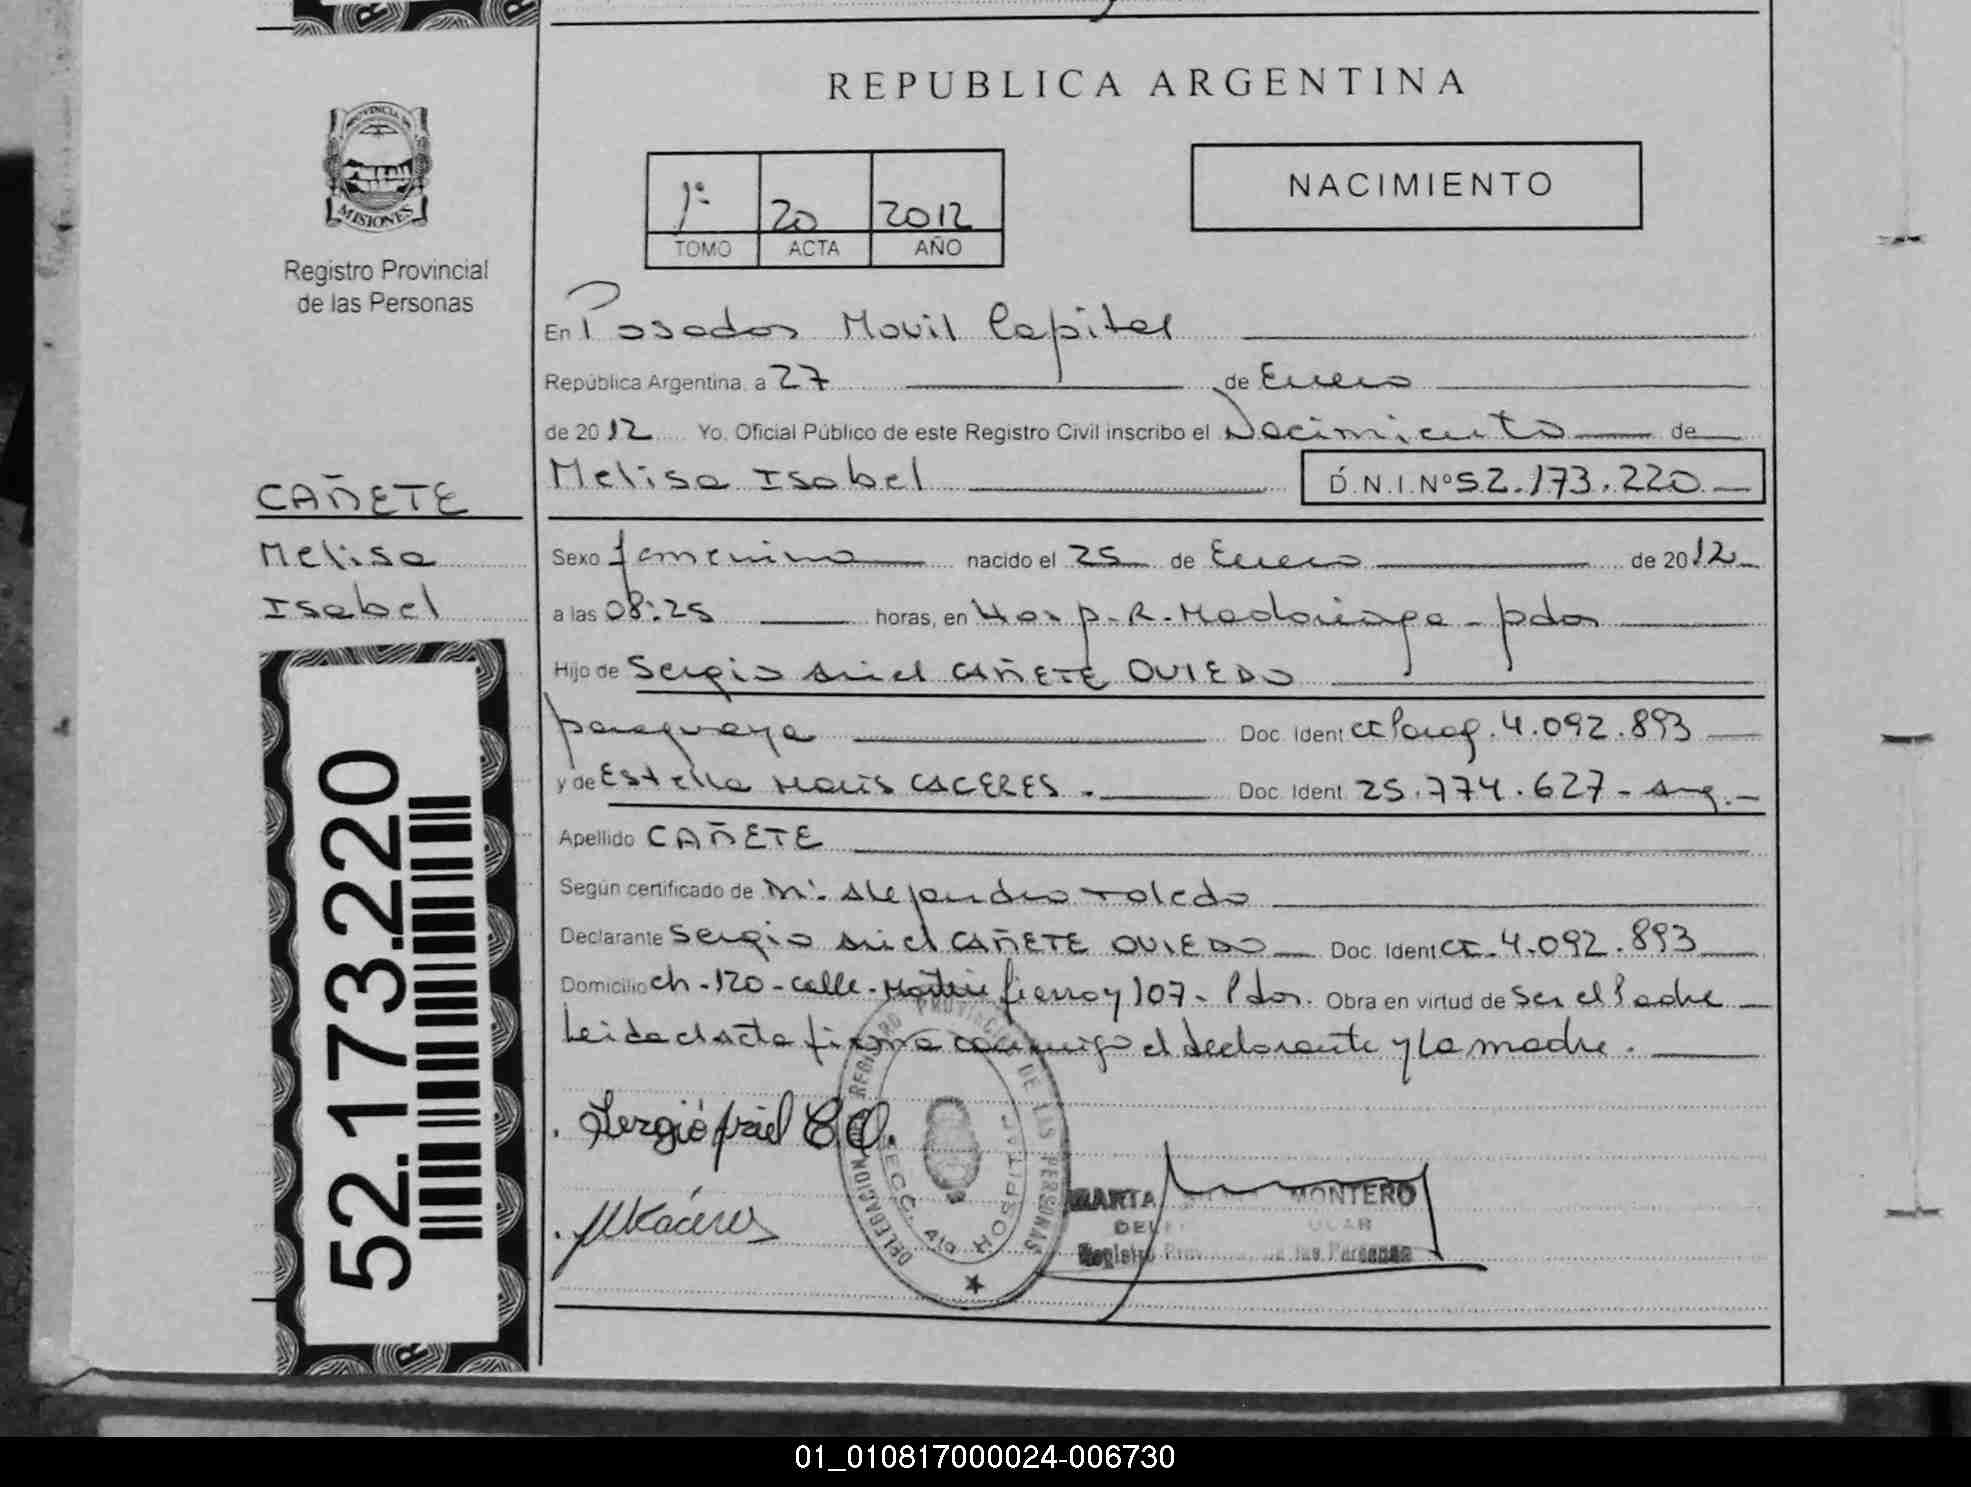 REPUBLICA ARGENTINA
PROVINCIA DE
MISIONES
Registro Provincial
de las Personas
1º 20 2012
TOMO ACTA AÑO
NACIMIENTO
En Posadas Movil Capital
República Argentina, a 27 de Enero
de 2012 Yo, Oficial Público de este Registro Civil inscribo el Nacimiento de
Melisa Isabel D.N.I.Nº 52.173.220
CAÑETE
Melisa
Isabel
Sexo femenino nacido el 25 de Enero de 2012
a las 08:25 horas, en Hosp. R. Madariaga - pdas
Hijo de Sergio Ariel CAÑETE OVIEDO
paraguaya Doc. Ident CI Parag. 4.092.893
y de Estella Maris CACERES. Doc. Ident. 25.774.627 - Arg.
Apellido CAÑETE
Según certificado de Mª. Alejandra Toledo
Declarante Sergio Ariel CAÑETE OVIEDO Doc. Ident CI. 4.092.893
Domicilio ch - 120 - calle - Martin fierro y 107 - Pdas. Obra en virtud de Ser el Padre
Leida el acta firma conmigo el declarante y la madre.
Sergió Ariel C.O.
DELEGACION REGISTRO PROVINCIAL DE LAS PERSONAS
SECC. HOSPITAL
MARTA MONTERO
Registro Provincial de las Personas
52.173.220
01_010817000024-006730